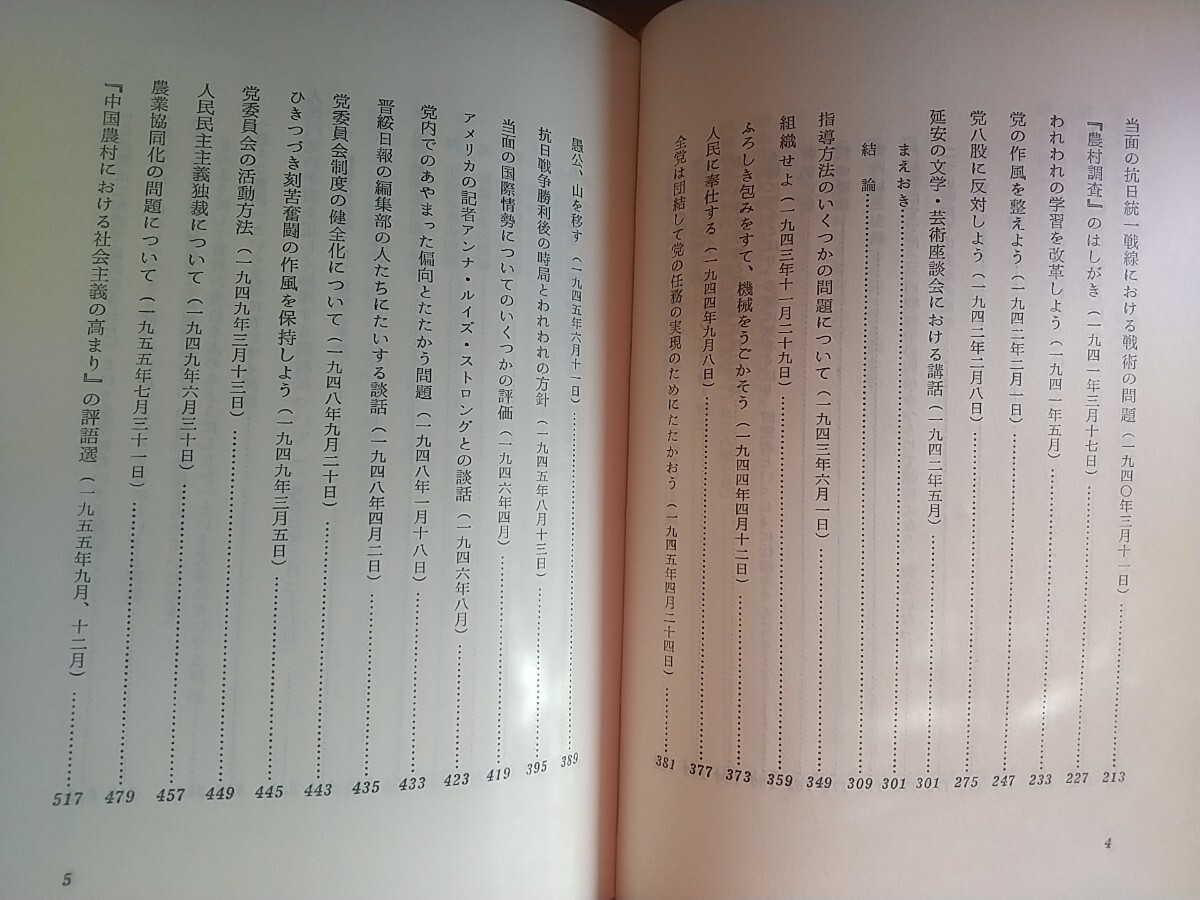 当面の抗日統一戦線における戦術の問題（一九四〇年三月十一日）……213
『農村調査』のはしがき（一九四一年三月十七日）……227
われわれの学習を改革しよう（一九四一年五月）……233
党の作風を整えよう（一九四二年二月一日）……247
党八股に反対しよう（一九四二年二月八日）……275
延安の文学・芸術座談会における講話（一九四二年五月）……301
まえおき……301
結論……309
指導方法のいくつかの問題について（一九四三年六月一日）……349
組織せよ（一九四三年十一月二十九日）……359
ふろしき包みをすて、機械をうごかそう（一九四四年四月十二日）……373
人民に奉仕する（一九四四年九月八日）……377
全党は団結して党の任務の実現のためにたたかおう（一九四五年四月二十四日）……381
4
愚公、山を移す（一九四五年六月十一日）……389
抗日戦争勝利後の時局とわれわれの方針（一九四五年八月十三日）……395
当面の国際情勢についてのいくつかの評価（一九四六年四月）……419
アメリカの記者アンナ・ルイズ・ストロングとの談話（一九四六年八月）……423
党内でのあやまった偏向とたたかう問題（一九四八年一月十八日）……433
晋綏日報の編集部の人たちにたいする談話（一九四八年四月二日）……435
党委員会制度の健全化について（一九四八年九月二十日）……443
ひきつづき刻苦奮闘の作風を保持しよう（一九四九年三月五日）……445
党委員会の活動方法（一九四九年三月十三日）……449
人民民主主義独裁について（一九四九年六月三十日）……457
農業協同化の問題について（一九五五年七月三十一日）……479
『中国農村における社会主義の高まり』の評語選（一九五五年九月、十二月）……517
5